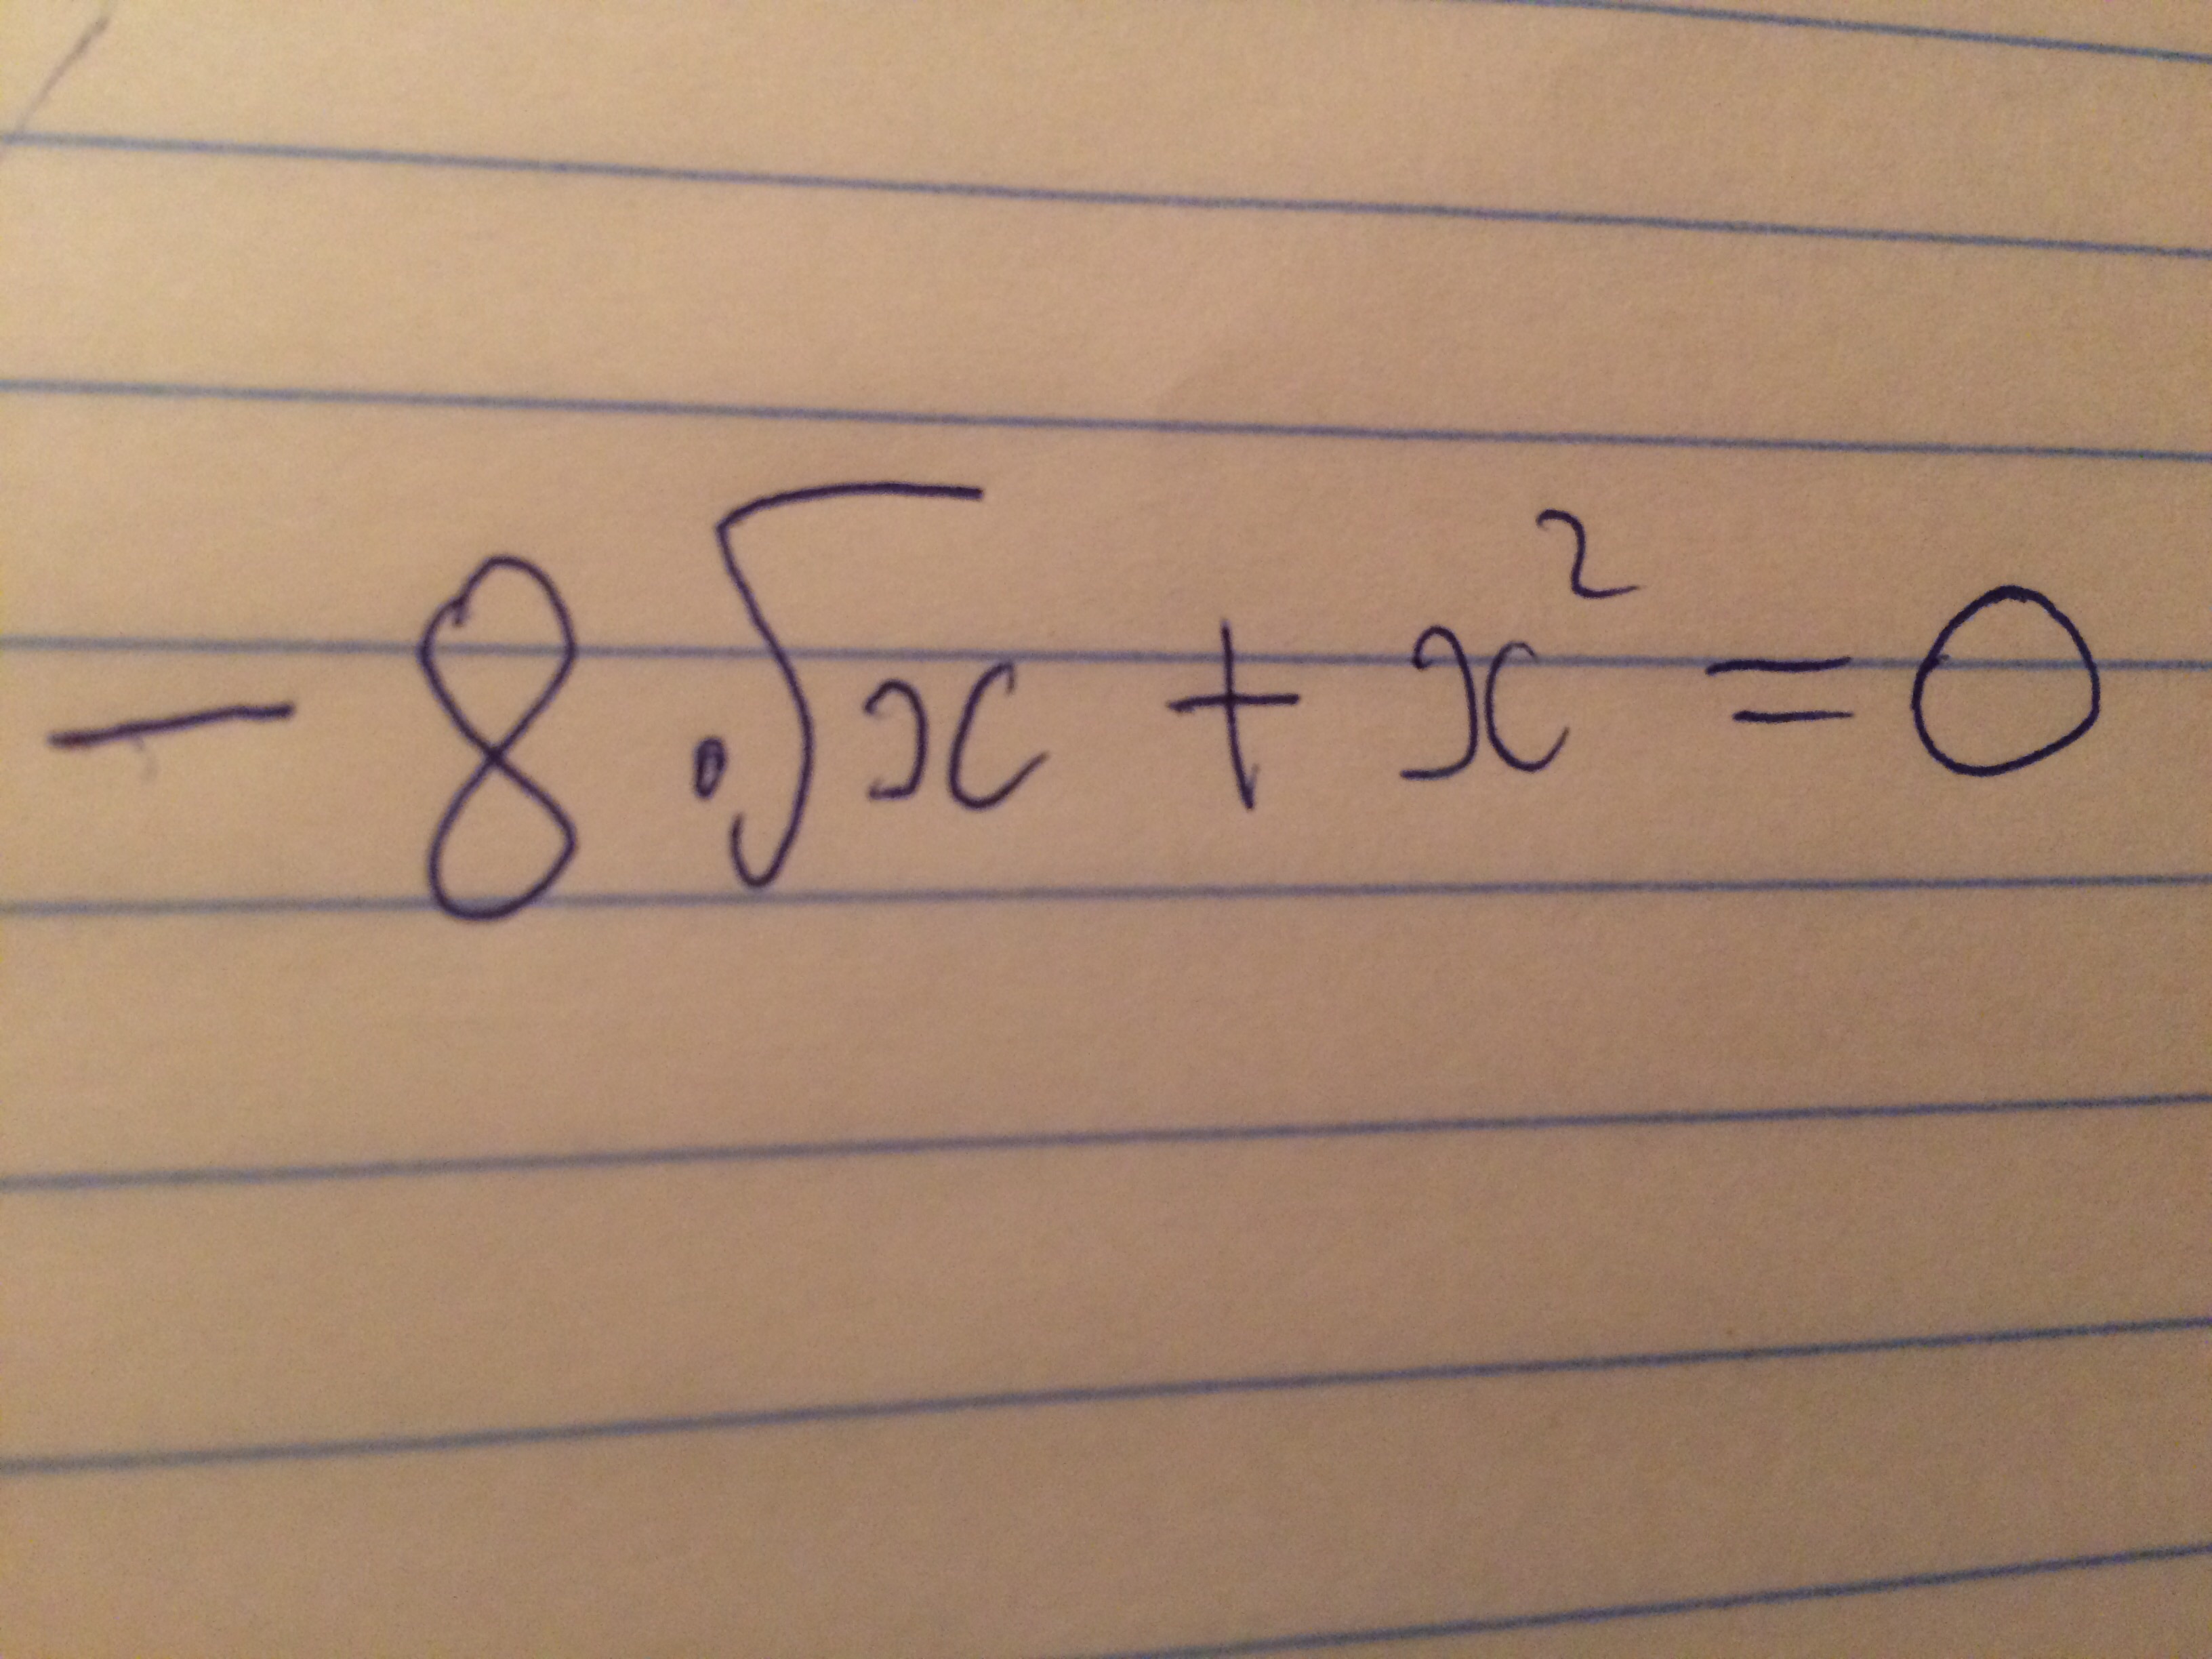 - 8.√x + x² = 0